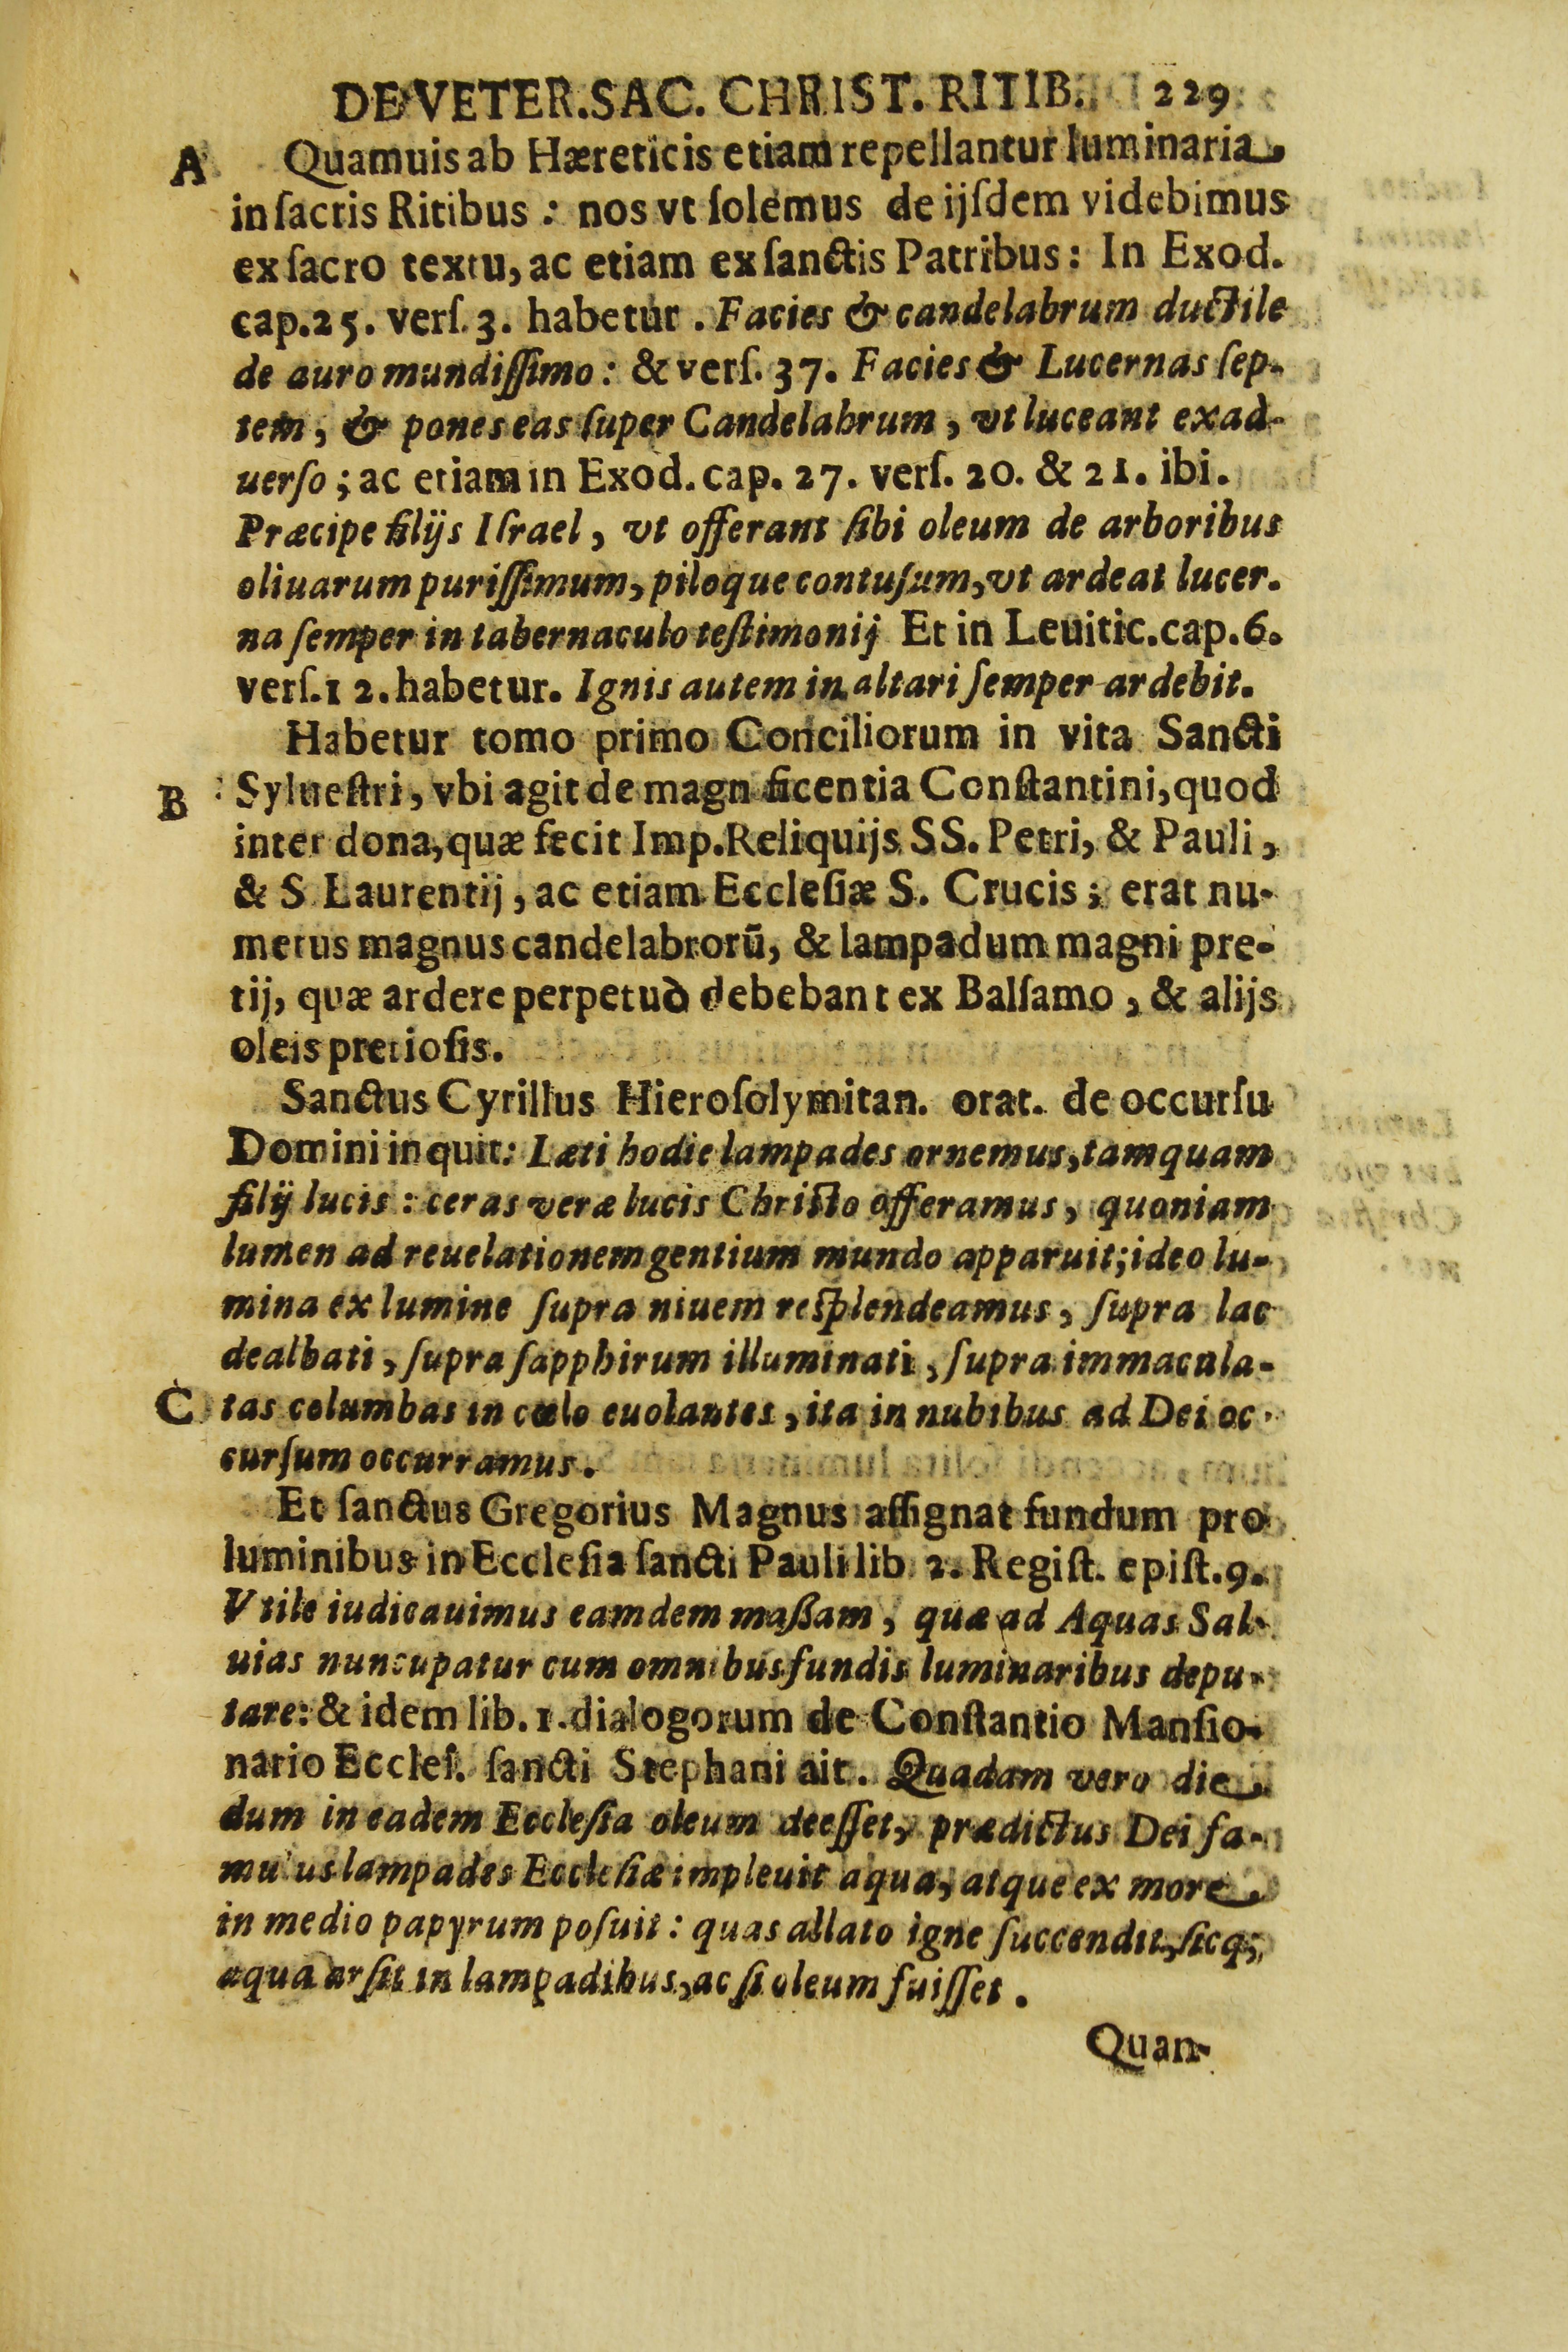 DE VETER.SAC. CHRIST. RITIB. 229
A Quamuis ab Hæreticis etiam repellantur luminaria,
in ſacris Ritibus : nos vt ſolemus de ijſdem videbimus
ex ſacro textu, ac etiam ex ſanctis Patribus : In Exod.
cap.25. verſ. 3. habetur . Facies & candelabrum ductile
de auro mundiſſimo : & verſ. 37. Facies & Lucernas ſep-
tem, & pones eas ſuper Candelabrum, vt luceant exad-
uerſo ; ac etiam in Exod. cap. 27. verſ. 20. & 21. ibi.
Præcipe filijs Iſrael, vt offerant ſibi oleum de arboribus
oliuarum puriſſimum, piloque contuſum, vt ardeat lucer.
na ſemper in tabernaculo teſtimonij Et in Leuitic. cap. 6.
verſ.12. habetur. Ignis autem in altari ſemper ardebit.
Habetur tomo primo Conciliorum in vita Sancti
B Sylueſtri, vbi agit de magn ficentia Conſtantini, quod
inter dona, quæ fecit Imp. Reliquijs SS. Petri, & Pauli,
& S Laurentij, ac etiam Eccleſiæ S. Crucis ; erat nu-
merus magnus candelabrorū, & lampadum magni pre-
tij, quæ ardere perpetuò debebant ex Balſamo, & alijs
oleis pretioſis.
Sanctus Cyrillus Hieroſolymitan. orat. de occurſu
Domini inquit: Læti hodie lampades ornemus, tamquam
filij lucis : ceras veræ lucis Chriſto offeramus, quoniam
lumen ad reuelationem gentium mundo apparuit; ideo lu-
mina ex lumine ſupra niuem reſplendeamus, ſupra lac
dealbati, ſupra ſapphirum illuminati, ſupra immacula-
C tas columbas in cælo euolantes, ita in nubibus ad Dei oc-
curſum occurramus.
Et ſanctus Gregorius Magnus aſſignat fundum pro
luminibus in Eccleſia ſancti Pauli lib. 2. Regiſt. epiſt. 9.
Vtile iudicauimus eamdem maßam, quæ ad Aquas Sal-
uias nuncupatur cum omnibus fundis luminaribus depu-
tare: & idem lib. 1. dialogorum de Conſtantio Manſio-
nario Eccleſ. ſancti Stephani ait. Quadam vero die,
dum in eadem Eccleſia oleum deeſſet, prædictus Dei fa-
mulus lampades Eccleſiæ impleuit aqua, atque ex more,
in medio papyrum poſuit : quas allato igne ſuccendit, ſicq;
aqua arſit in lampadibus, ac ſi oleum fuiſſet.
Quan-